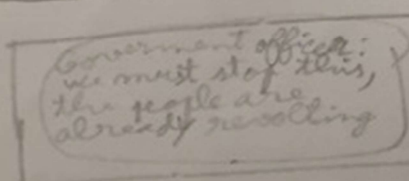 Goverment officer:
we must stop this,
the people are
already revolting